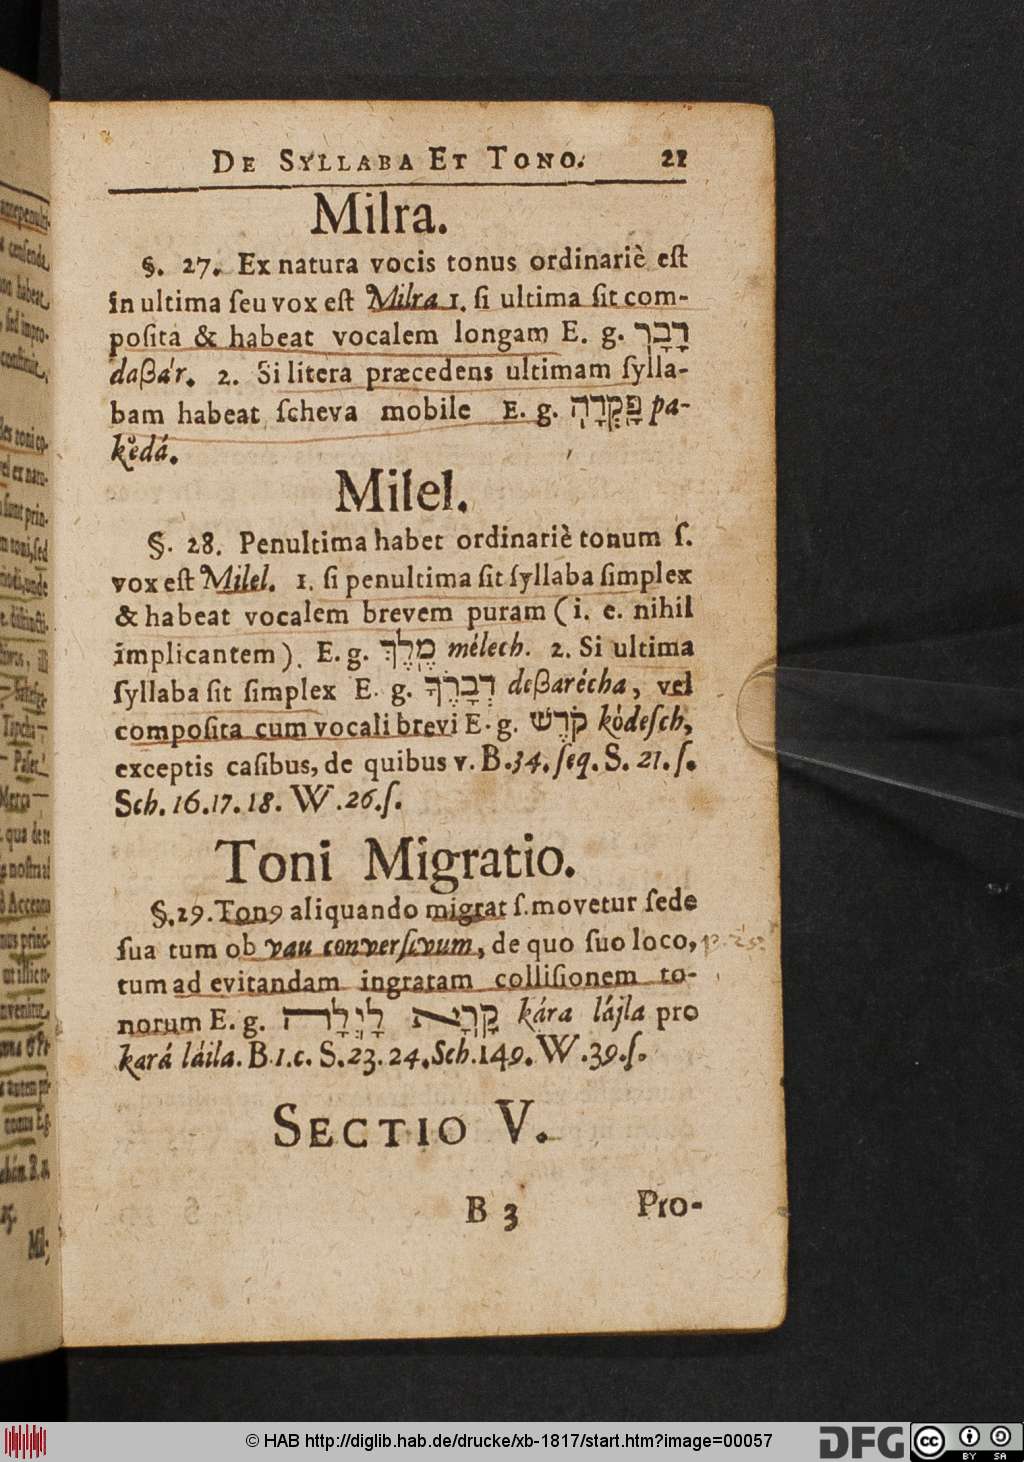 DE SYLLABA ET TONO. 21
Milra.
§. 27. Ex natura vocis tonus ordinariè eſt
in ultima ſeu vox eſt Milra 1. ſi ultima ſit com-
poſita & habeat vocalem longam E. g. דָבָר
daßár. 2. Si litera præcedens ultimam ſylla-
bam habeat ſcheva mobile E. g. פָּקְדָה pa-
kedá.
Milel.
§. 28. Penultima habet ordinariè tonum ſ.
vox eſt Milel. 1. ſi penultima ſit ſyllaba ſimplex
& habeat vocalem brevem puram (i. e. nihil
implicantem). E. g. מֶלֶךְ mélech. 2. Si ultima
ſyllaba ſit ſimplex E. g. דְבָרֶךָ deßarécha, vel
compoſita cum vocali brevi E. g. קֹדֶשׁ kódeſch,
exceptis caſibus, de quibus v. B. 34. ſeq. S. 21. ſ.
Sch. 16. 17. 18. W. 26. ſ.
Toni Migratio.
§. 29. Tonꝰ aliquando migrat ſ. movetur ſede
ſua tum ob vau converſivum, de quo ſuo loco,
tum ad evitandam ingratam colliſionem to-
norum E. g. קָרָא לָיְלָה kára lájla pro
kará láila. B. l. c. S. 23. 24. Sch. 149. W. 39. ſ.
SECTIO V.
B 3 Pro-
© HAB http://diglib.hab.de/drucke/xb-1817/start.htm?image=00057
DFG
cc BY SA